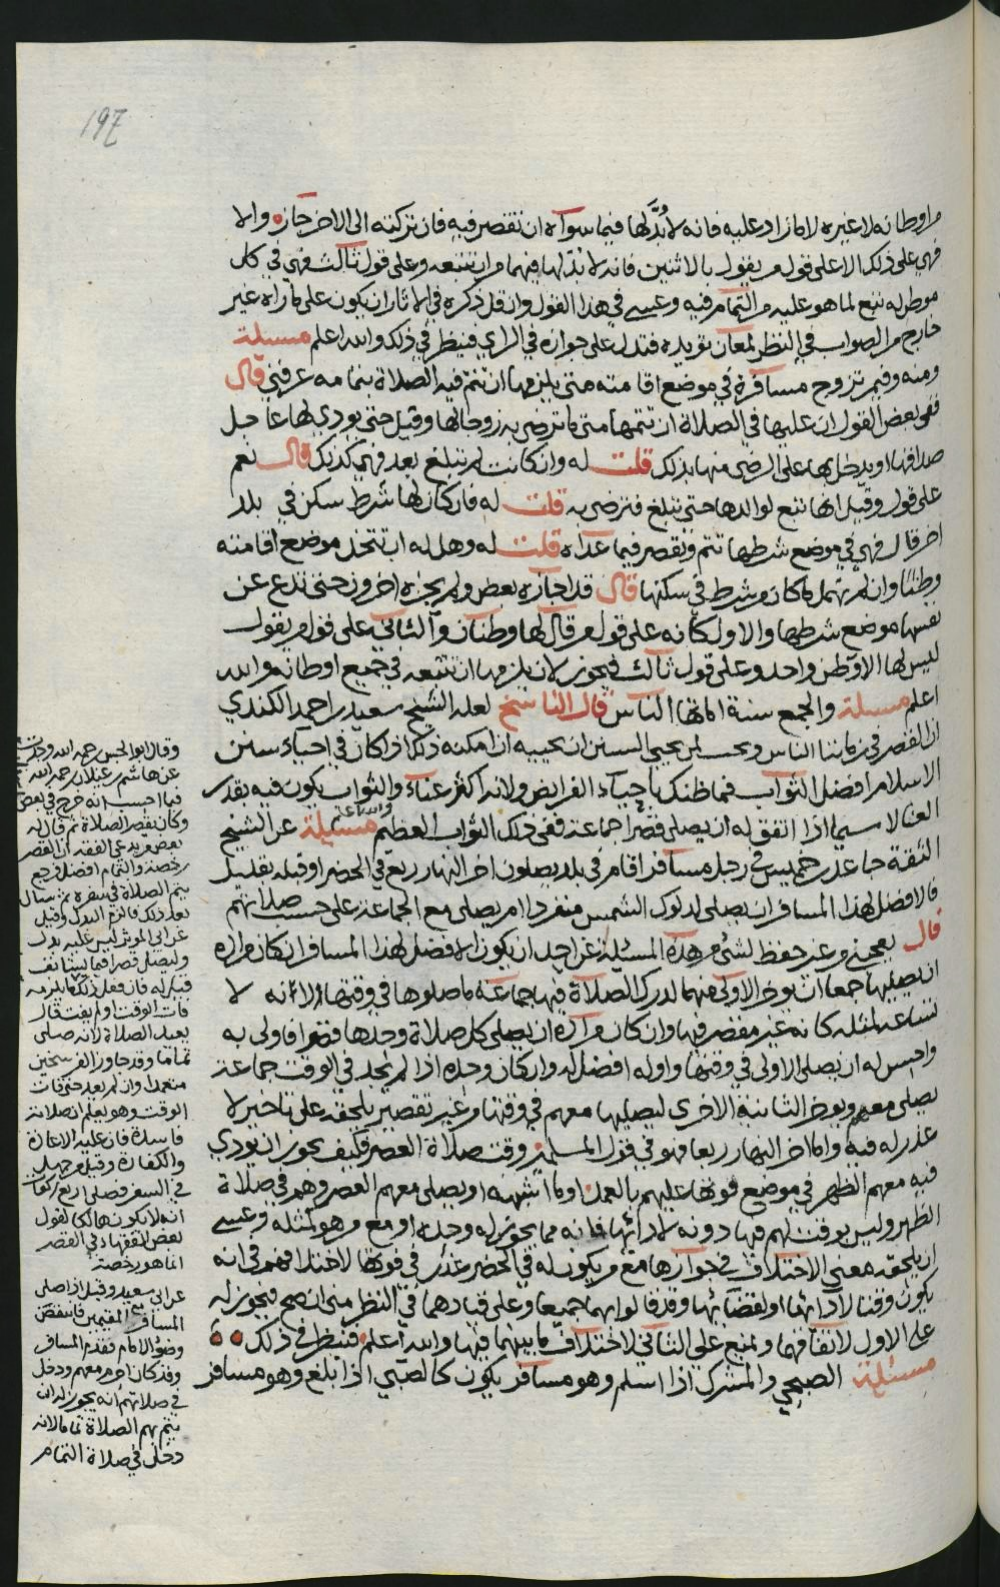 197
من اوطانه لا غيره لا ما زاد عليه فانه لا بُدَّ لها فيما سواه ان تقصر فيه فان تركته الى الاخر جاز والا
فهي على ذلك الا على قول من يقول بالاثنين فانه لا بد لها فيهما من ان تتبعه وعلى قول ثالث فهي في كل
موطن له تبع لما هو عليه من التمام فيه وعسى في هذا القول وان قل ذكره في الاثار ان يكون على ما اراه غير
خارج من الصواب في النظر لمعان تؤيده فتدل على جوازه في الراي فينظر في ذلك والله اعلم مسئلة
ومنه وفيمن تزوج مسافرة في موضع اقامته متى يلزمها ان تتم فيه الصلاة بتمامه عرفني قال
ففي بعض القول ان عليها في الصلاة ان تتمها متى ما ترضى به زوجا لها وقيل حتى يودي لها عاجل
صداقها او يدخل بها على الرضى منها بذلك قلت له وان كانت لم تبلغ بعد فهي كذلك قال نعم
على قول وقيل انها تبع لوالدها حتى تبلغ فترضى به قلت له فان كان لها شرط سكن في بلد
اخر قال فهي في موضع شرطها تتم وتقصر فيما عداه قلت له وهل له ان تتخذ موضع اقامته
وطنًا وان لم تهمل ما كان من شرط في سكنها قال قد اجازه بعض ولم يجزه اخرون حتى تدع عن
نفسها موضع شرطها والاول كانه على قول من قال لها وطنان والثاني على قول من يقول
ليس لها الا وطن واحد وعلى قول ثالث فيجوز لان يلزمها ان تتبعه في جميع اوطانه والله
اعلم مسئلة والجمع سنة اماتها الناس قال الناسخ لعله الشيخ سعيد بن احمد الكندي
ان القصر في زماننا الناس ويحب لمن يحيي السنن ان يحييه ان امكنه ذلك اذا كان في احياء سنن
الاسلام افضل الثواب فما ظنك باحياء الفرايض ولانه اكثر عناء والثواب يكون فيه بقدر
العنا لا سيما اذا اتفق له ان يصلي قصرا جماعة ففي ذلك الثواب العظيم والله اعلم مسئلة عن الشيخ
الثقة جاعد بن خميس في رجل مسافر اقام في بلد يصلون اخر النهار ربع في الحضر او قبله بقليل
قال افضل لهذا المسافر ان يصلي لدلوك الشمس منفردا ام يصلي مع الجماعة على حسب صلاتهم
قال يعجزني وعن حفظ لشئ من هذه المسئلة عن اجل ان يكون الافضل لهذا المسافر ان كان مراده
ان يصليها جمعا ان يوخر الاولى منهما لدرك الصلاة فيها جماعة ما صلوها في وقتها لانه لا
لمثله كانه غير مقصر فيها وان كان مراده ان يصلي كل صلاة وحدها قصرا فاولى به
واحسن له ان يصلي الاولى في وقتها واوله افضل له وان كان وحده اذا لم يجد في الوقت جماعة
يصلي معهم ويوخر الثانية الاخرى ليصليها معهم في وقتها من غير تقصير يلحقه على تاخير لا
عذر له فيه واما اخر النهار ربعا فهو في قول المسلمين وقت صلاة العصر فكيف يجوز ان يودي
فيه معهم الظهر في موضع فوتها عليهم بالعمد او ما اشبهه او يصلي معهم العصر وهم في صلاة
الظهر وليس بوقت لهم فيها دونه لادائها فانه مما يجوز له وحده او مع من هو لمثله وعسى
ان يلحقه معنى الاختلاف في جوازها مع من يكون له في الحضر عذر في فوتها لاختلافهم في انه
يكون وقتا لادائها او لقضائها وقد قالوا بهما جميعا وعلى قيادهما في النظر متى ان صح فيجوز له
على الاول لاتفاقهما ويمنع على الثاني لاختلاف ما بينهما فيها والله اعلم فينظر في ذلك
مسئلة الصبحي والمشرك اذا اسلم وهو مسافر يكون كالصبي اذا بلغ وهو مسافر
وقال ابو الحسن رحمه الله وجدت
عن هاشم بن غيلان رحمه الله
فيما احسب انه خرج في بعض
وكان يقصر الصلاة ثم قال له
بعض من يدعي الفقه ان القصر
رخصة والتمام افضل فرجع
يتم الصلاة في سفره ثم سال
بعد ذلك فالزم البدل وقيل
عن ابي المؤثر ليس عليه بدل
وليصل قصرا فيما يستانف
قيل له فان فعل ذلك ما يلزمه
فات الوقت او لم يفت قال
يعيد الصلاة لانه صلى
تماما وقد جاوز الفرسخين
متعمدا وان لم يعد حتى فات
الوقت وهو يعلم ان صلاته
فاسدة فان عليه الاعادة
والكفارة وقيل من جهل
في السفر فصلى اربع ركعات
انه لا يكون هالكا لقول
بعض الفقهاء في القصر
انما هو رخصة
عن ابي سعيد وقيل اذا صلى
المسافر مع المقيمين فانتقض
وضوء الامام فقدم المسافر
وقد كان احرم معهم ودخل
في صلاتهم انه يجوز له ان
يتم بهم الصلاة تماما لانه
دخل في صلاة التمام